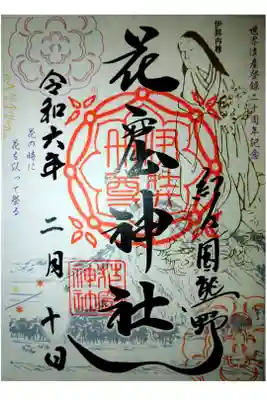 世界遺産登録二十周年記念
紀伊国熊野
花窟神社
伊弉冊尊
花窟神社
令和六年
二月
十日
花の時に
花を以って祭る